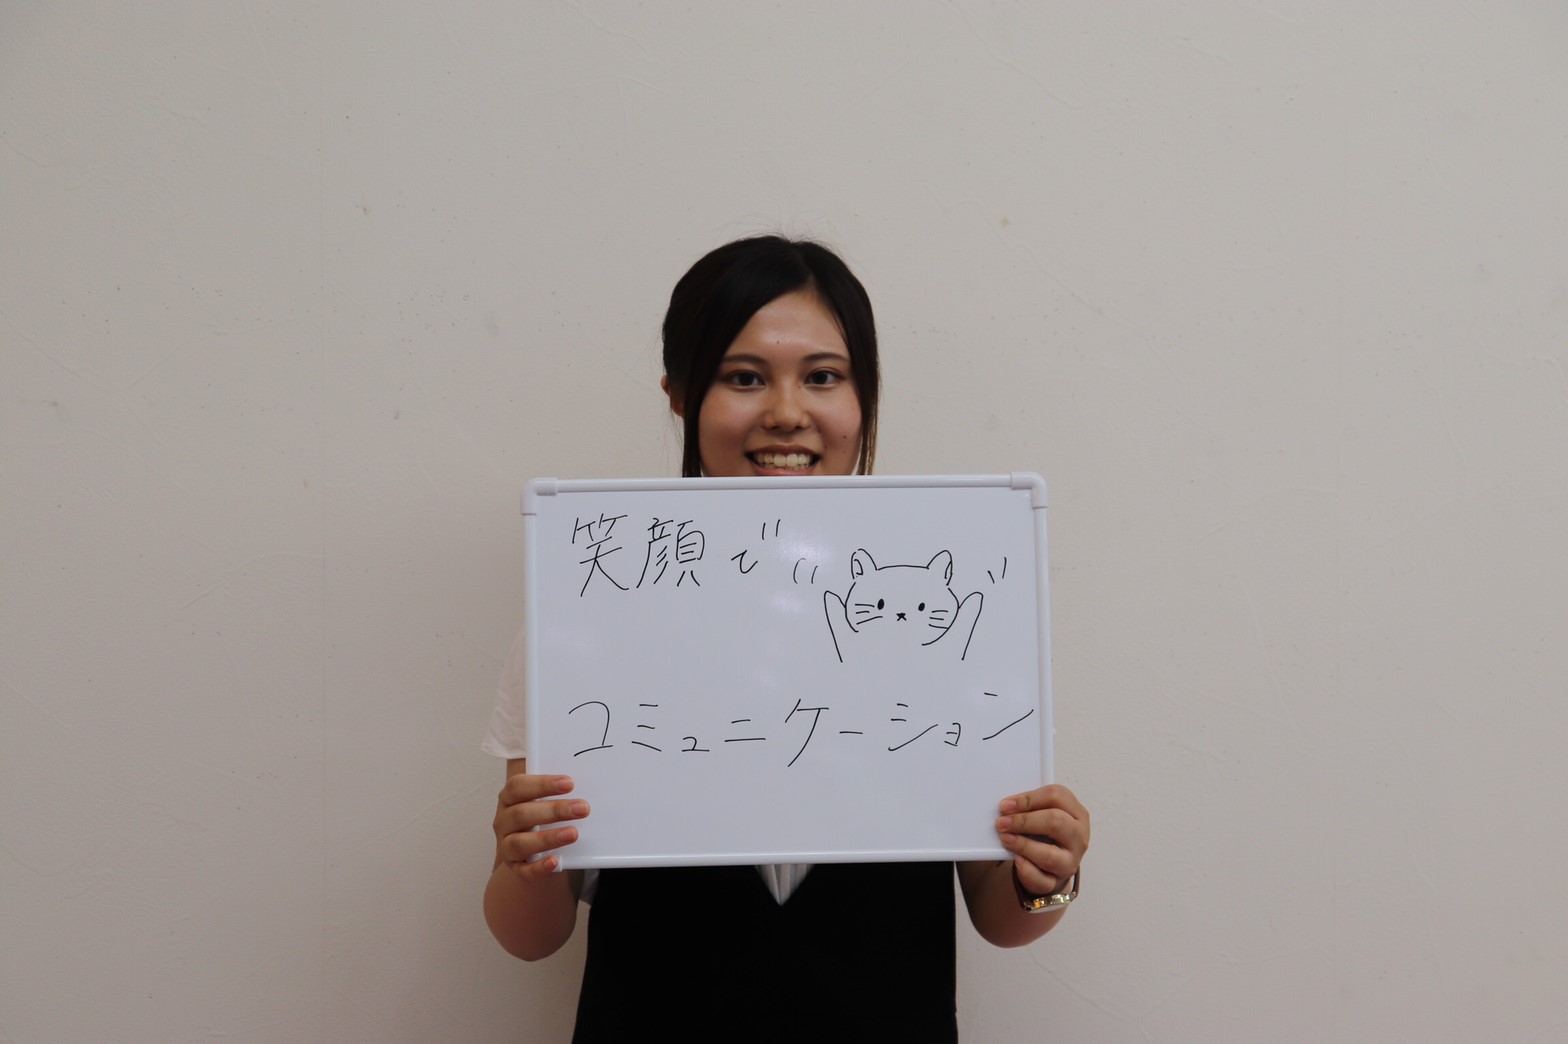 笑顔で
コミュニケーション